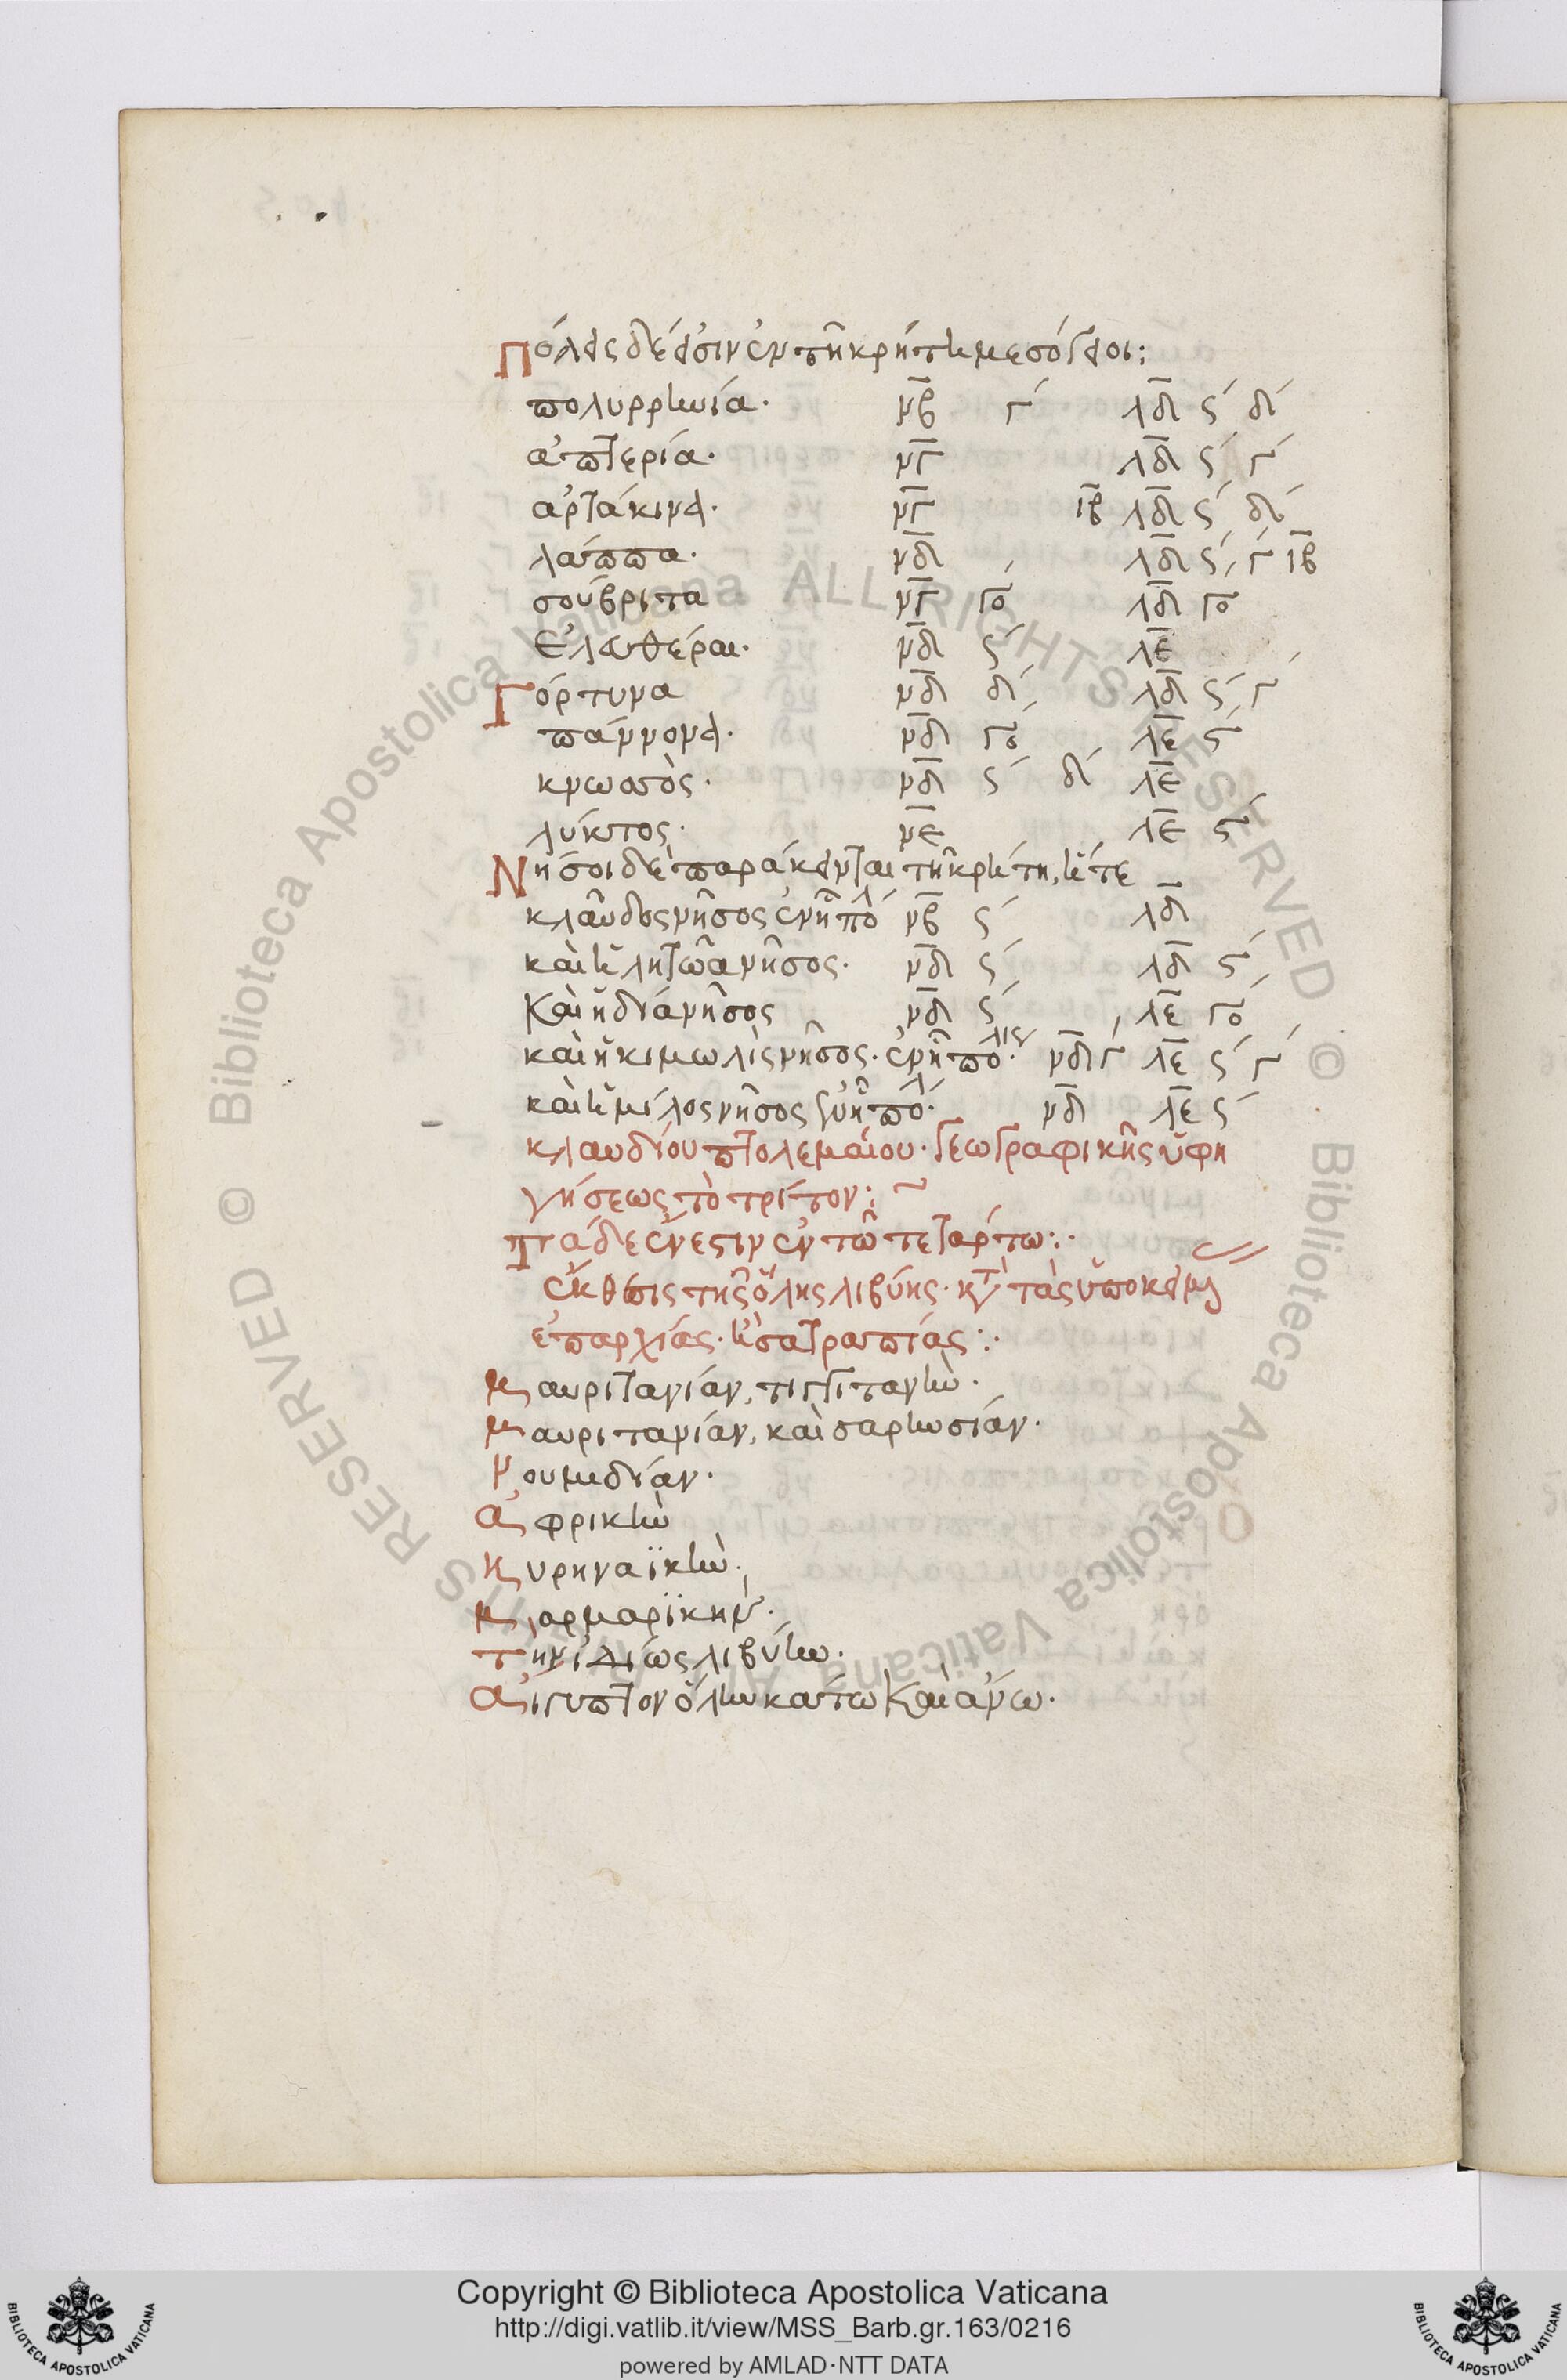 Πόλεις δέ εἰσιν ἐν τῆ κρήτη μεσόγειοι:
πολυρρηνία. μβ γ λδ ς δ
ἀπτερία. μγ λδ ς γ
ἀρτάκινα. μγ ιβ λδ ς δ
λάππα. μδ λδ ς γ ιβ
σούβριτα μγ γο λδ γο
ἐλευθέραι. μδ ς λε
Γόρτυνα μδ δ λδ ς γ
πάννονα. μδ γο λε ς
κνωσὸς. μδ ς δ λε
λύκτος. με λε ς
Νῆσοι δὲ παράκεινται τῆ κρήτη, ἥ τε
κλαῦδος νῆσος ἐν ἧ πό μβ ς λδ
καὶ ἡ λητῶα νῆσος. μδ ς λδ ς
καὶ ἡ δία νῆσος μδ ς λε γο
καὶ ἡ κιμωλὶς νῆσος. ἐν ἧ πόλις. μδ γ λε ς γ
καὶ ἡ μίλος νῆσος ἐν ἧ πό. μδ λε ς
κλαυδίου πτολεμαίου. γεωγραφικῆς ὑφη
γήσεως τὸ τρίτον:~
Τάδε ἔνεστιν ἐν τῶ τετάρτω:.
ἔκθεσις τῆς ὅλης λιβύης. κτ τὰς ὑποκειμ
ἐπαρχίας. ἢ σατραπίας:.
μαυριτανίαν, τιγγιτανὴν.
μαυριτανίαν, καισαρηνσίαν.
νουμηδίαν.
ἀφρικὴν
κυρηναϊκὴν.
μαρμαρϊκὴν.
τὴν ἰδίως λιβύην.
αἴγυπτον ὅλην κάτω καὶ ἄνω.
Copyright © Biblioteca Apostolica Vaticana
http://digi.vatlib.it/view/MSS_Barb.gr.163/0216
powered by AMLAD·NTT DATA